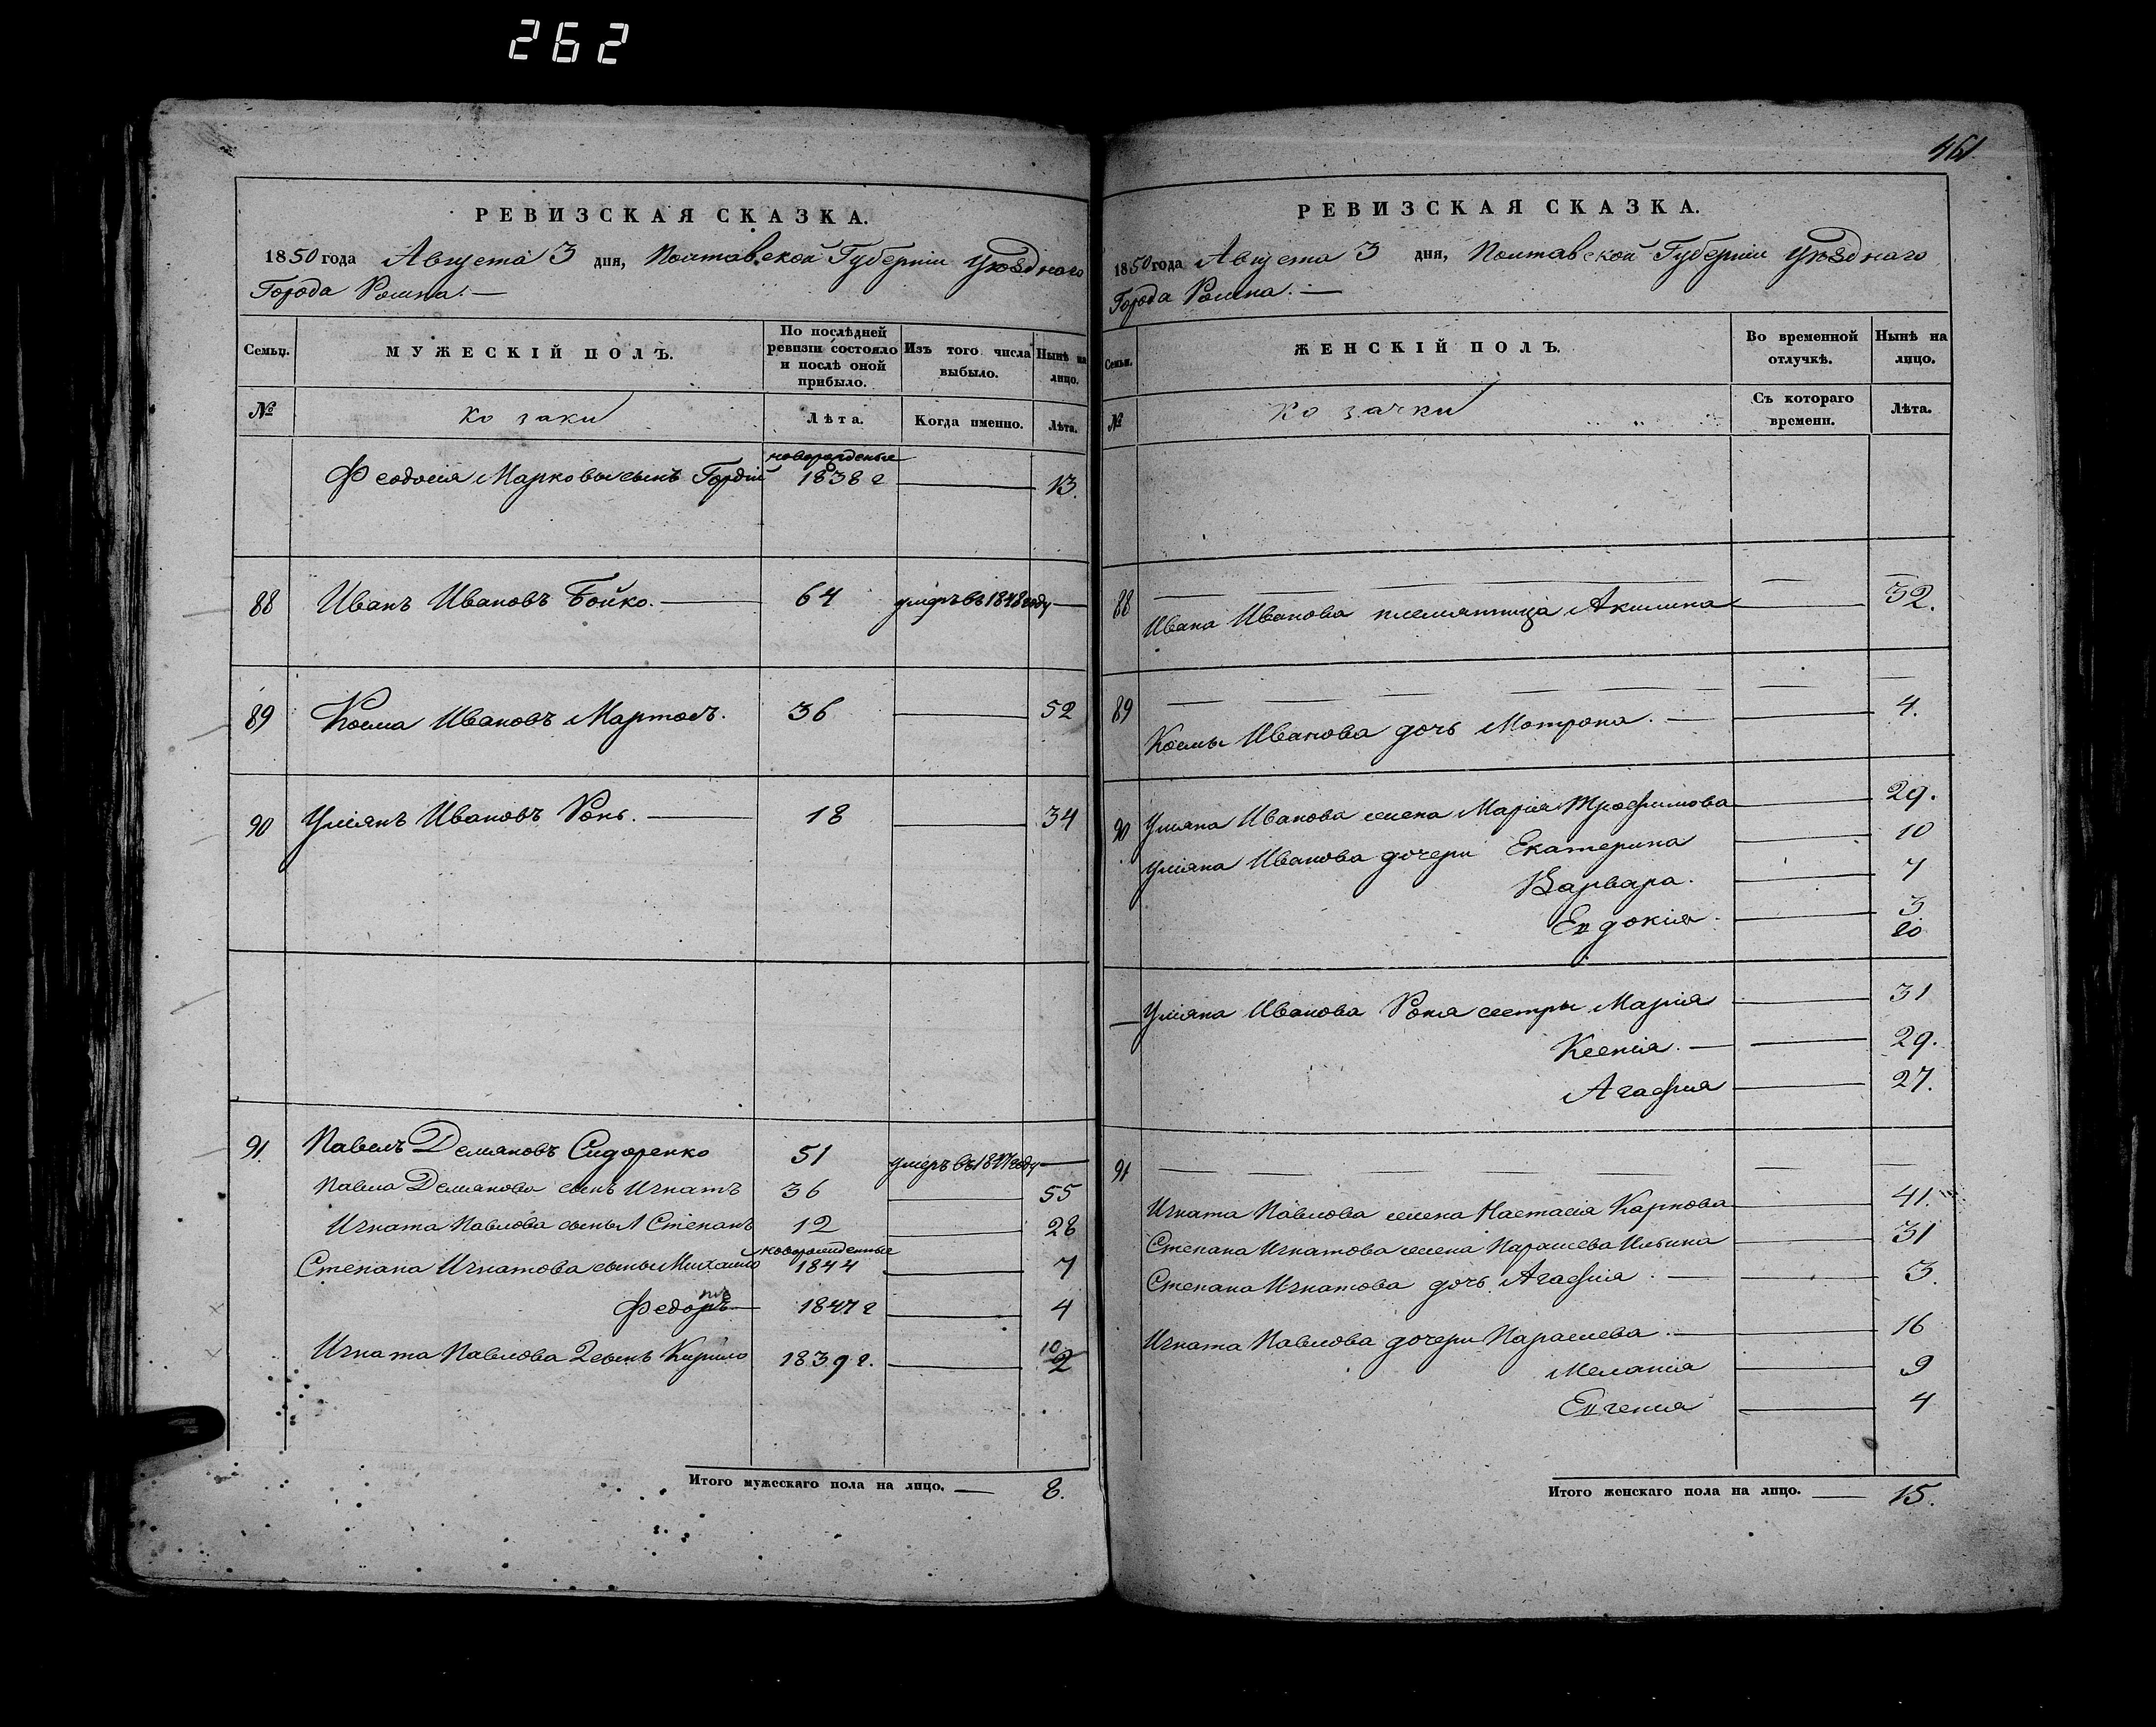 262
461.
РЕВИЗСКАЯ СКАЗКА.
1850 года Августа 3 дня, Полтавской Губерніи Уѣзднаго
Города Ромна. —
Семьи. МУЖЕСКІЙ ПОЛЪ. По послѣдней ревизіи состояло и послѣ оной прибыло. Изъ того числа выбыло. Нынѣ на лицо.
№ Козаки Лѣта. Когда именно. Лѣта.
новорожденые
Феодосія Маркова сынъ Гордій 1838 г — 13.
88 Иванъ Ивановъ Бойко. — 64 умеръ въ 1848 году —
89 Косма Ивановъ 36 — 52
90 Уліянъ Ивановъ Конь. — 18 — 34
91. Павелъ Демяновъ Сидоренко 51 умеръ въ 1847 году —
Павла Демянова сынъ Игнатъ 36 — 55
Игната Павлова сынъ 1 Степанъ 12 — 28
новорожденные
Степана Игнатова сыны Михайло 1844 — 7
Федоръ — 1847 г — 4
Игната Павлова 2 сынъ Кирило 1839 г. — 10
Итого мужескаго пола на лицо. — 8.
РЕВИЗСКАЯ СКАЗКА.
1850 года Августа 3 дня, Полтавской Губерніи Уѣзднаго
Города Ромна. —
Семьи. ЖЕНСКІЙ ПОЛЪ. Во временной отлучкѣ. Нынѣ на лицо.
№ Козачки Съ котораго времени. Лѣта.
88 — — —
Ивана Иванова племянница Акилина — 32.
89 — — — — — — —
Космы Иванова дочь Мотрона. — — 4.
90 Уліяна Иванова жена Марія Трофимова — 29.
Уліяна Иванова дочери Екатерина — 10
Варвара. — 7
Евдокія. — 3.
20
— Уліяна Иванова Коня сестры Марія — 31
Ксенія. — — 29.
Агафия — 27.
91 — — — — — — — — —
Игната Павлова жена Настасія Карпова — 41.
Степана Игнатова жена Парасиева Ильина — 31
Степана Игнатова дочь Агафия. — — 3.
Игната Павлова дочери Парасиева. — — 16
Меланія — 9
Евгенія — 4
Итого женскаго пола на лицо. — 15.